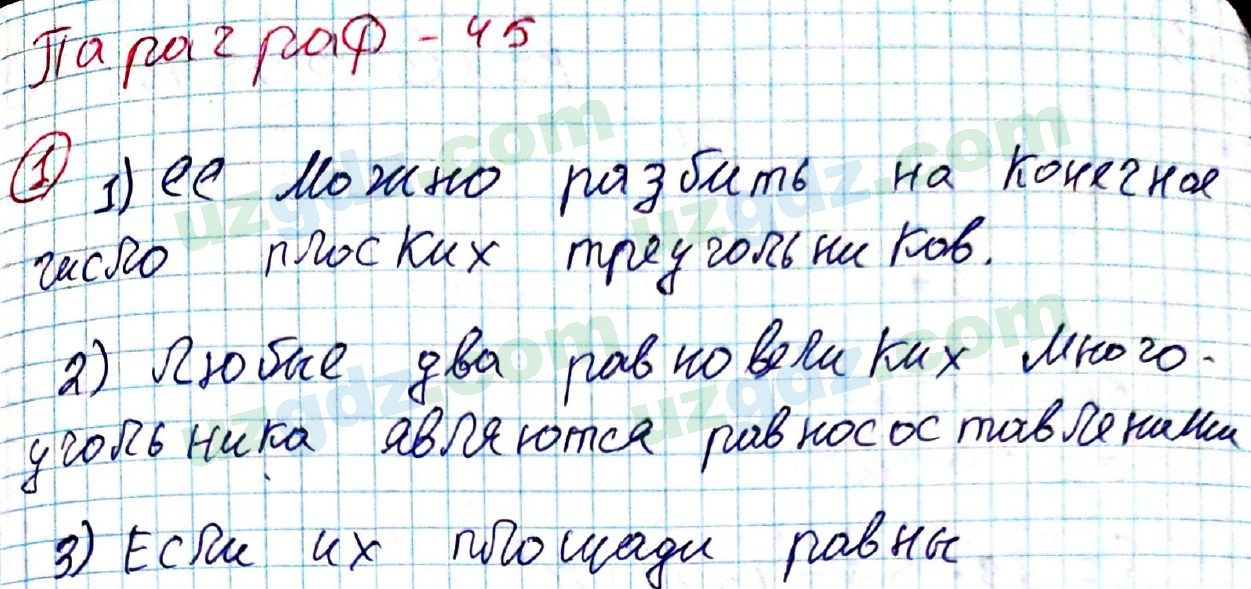 Параграф - 45
1 1) ее можно разбить на конечное
число плоских треугольников.
2) Любые два равновеликих много-
угольника являются равносоставленными
3) Если их площади равны
uzgdz.com
uzgdz.com
uzgdz.com
uzgdz.com